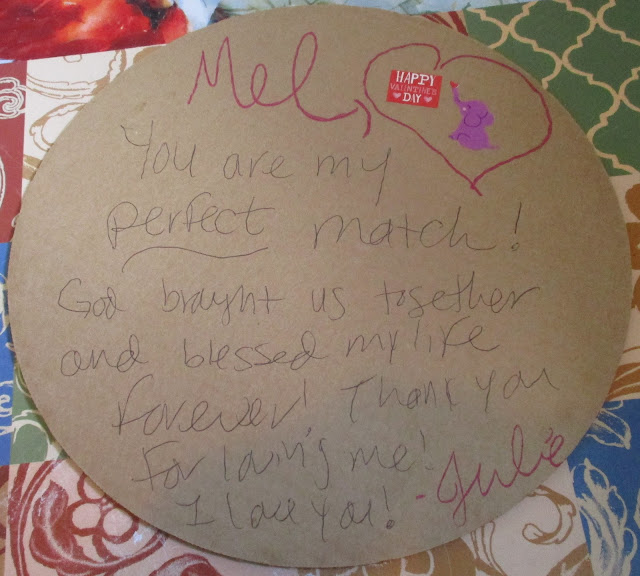 Mel,
HAPPY
VALENTINE'S
DAY
You are my
perfect match!
God brought us together
and blessed my life
forever! Thank you
for loving me!
I love you! - Julie